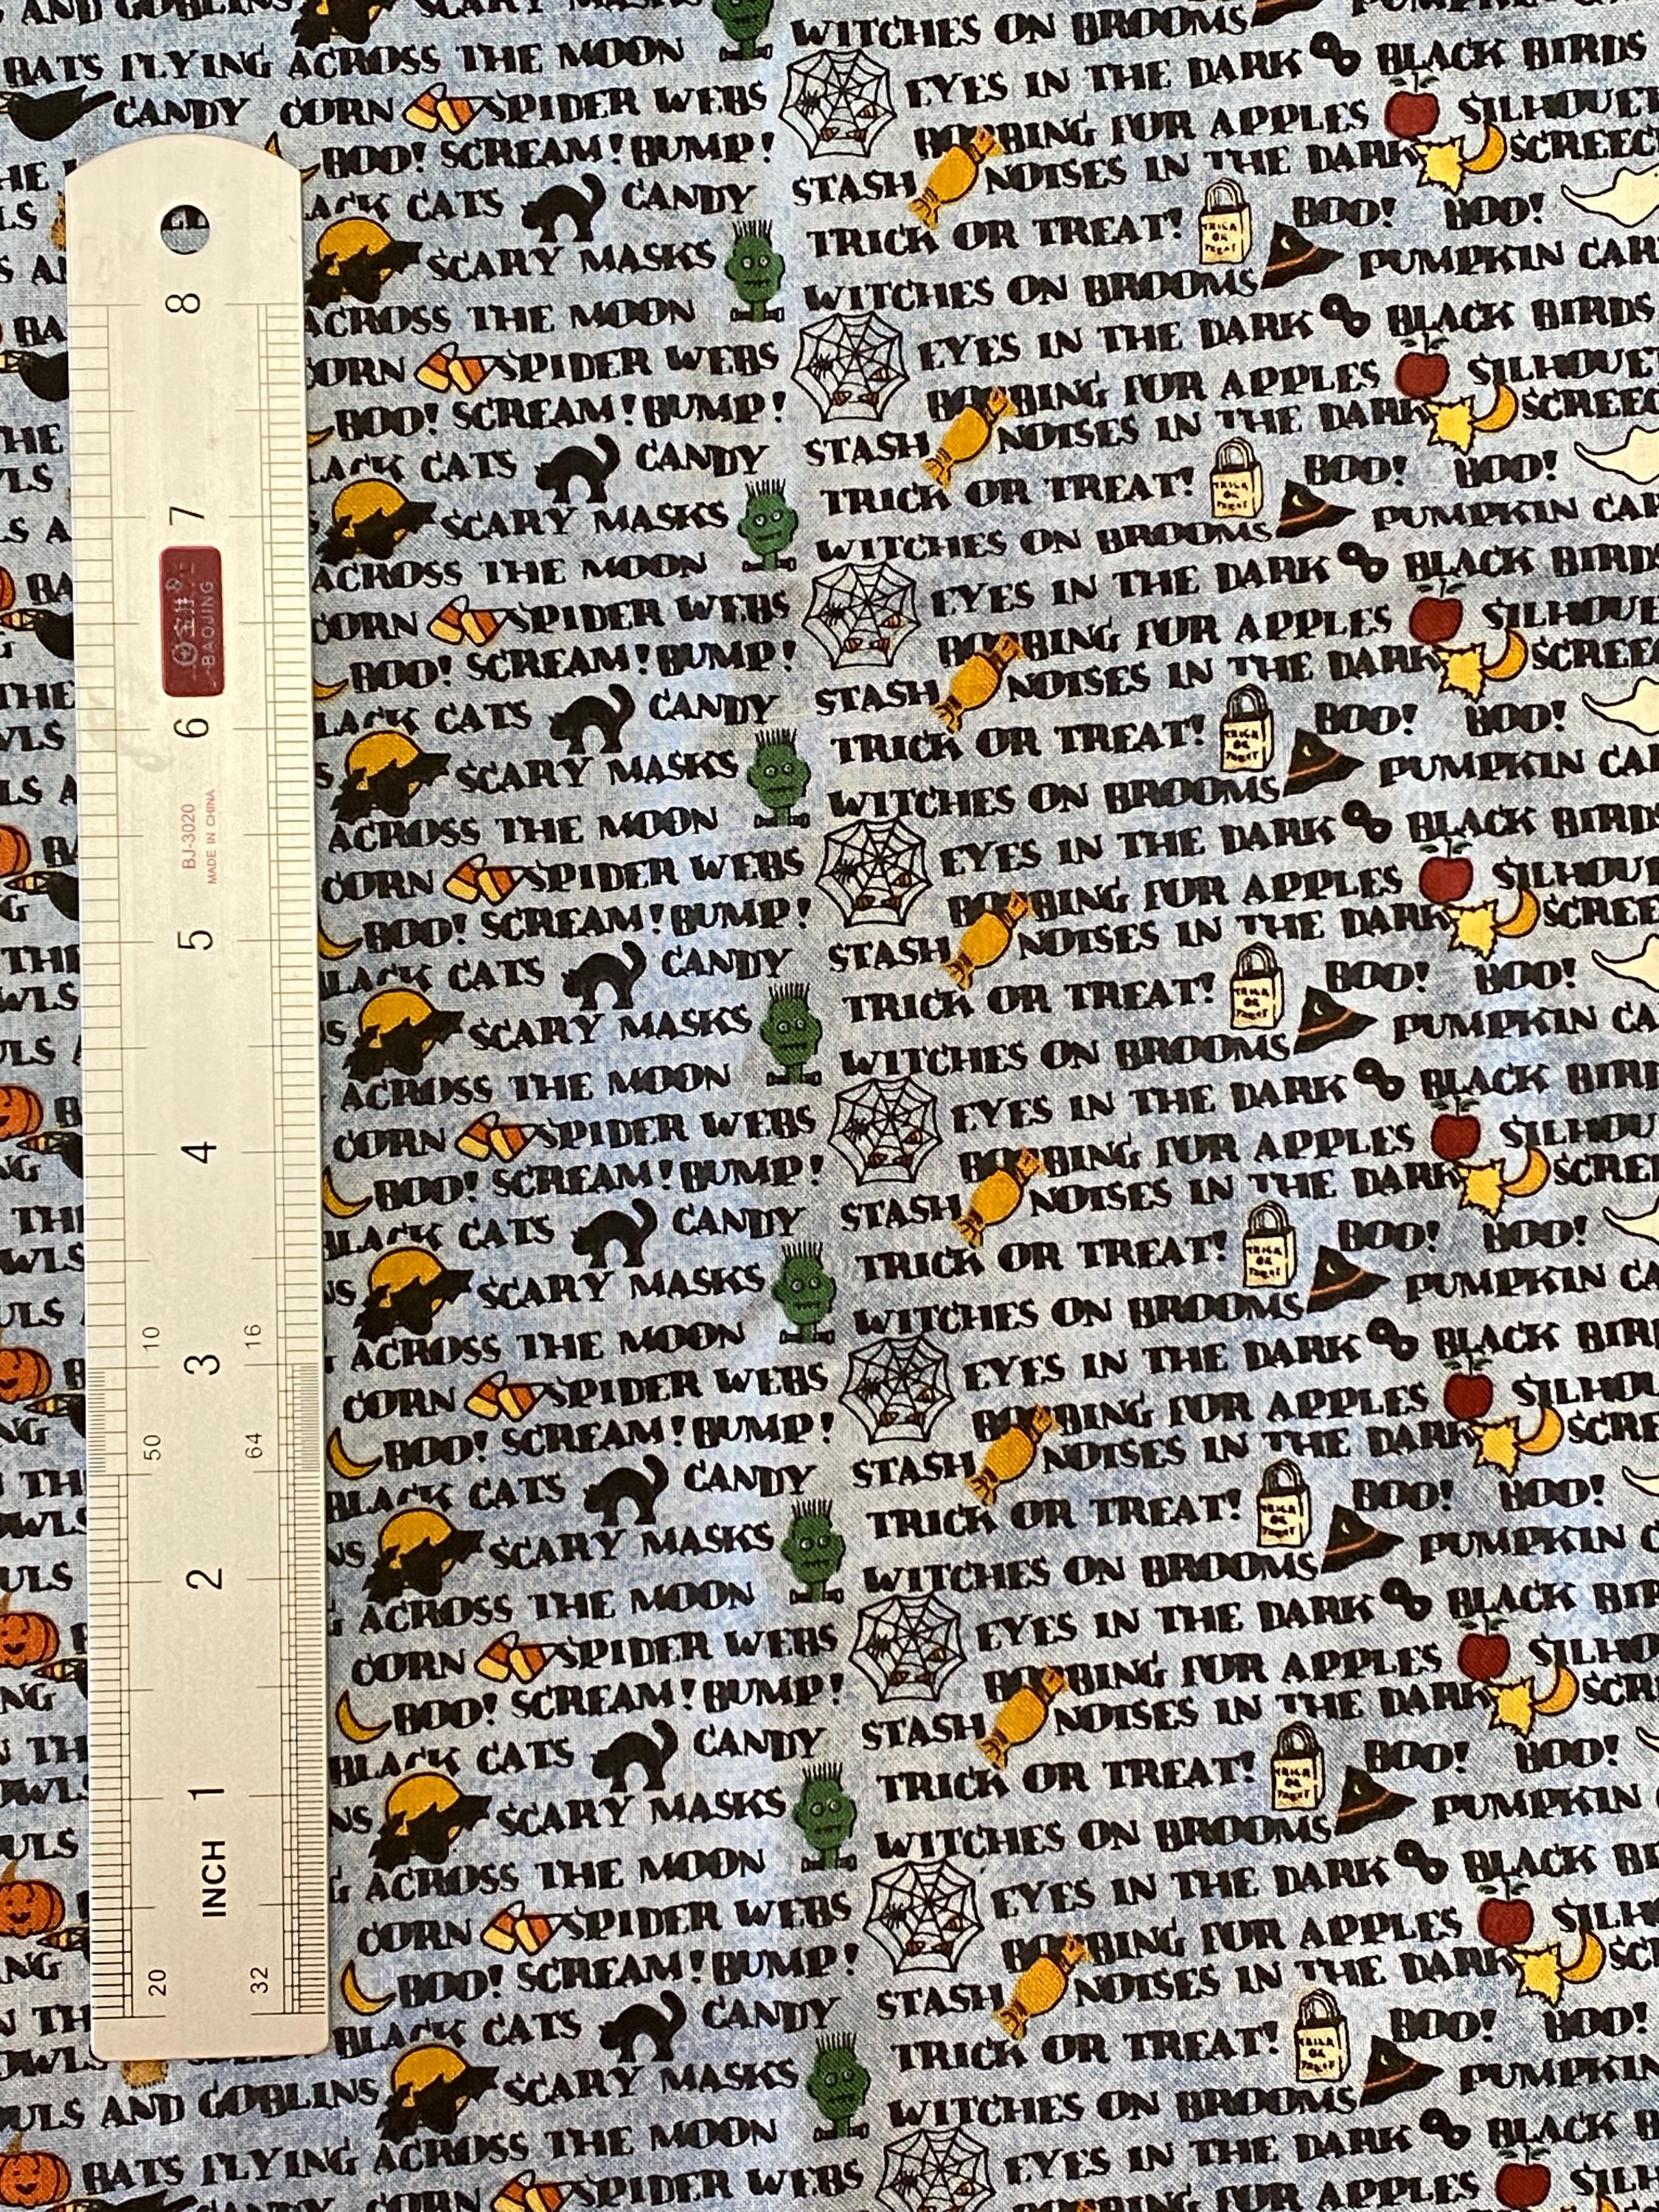 AND GOBLINS SCARY MASKS
BATS FLYING ACROSS THE MOON WITCHES ON BROOMS
CANDY CORN SPIDER WEBS EYES IN THE DARK BLACK BIRDS
BOO! SCREAM! BUMP! BOBBING FOR APPLES
CATS CANDY STASH NOISES IN THE DARK
SCARY MASKS TRICK OR TREAT! BOO! BOO!
TRICK OR TREAT
ACROSS THE MOON WITCHES ON BROOMS PUMPKIN
CORN SPIDER WEBS EYES IN THE DARK BLACK BIRDS
BOO! SCREAM! BUMP! BOBBING FOR APPLES
CATS CANDY STASH NOISES IN THE DARK
SCARY MASKS TRICK OR TREAT! BOO! BOO!
TRICK OR TREAT
ACROSS THE MOON WITCHES ON BROOMS PUMPKIN
CORN SPIDER WEBS EYES IN THE DARK BLACK BIRDS
BOO! SCREAM! BUMP! BOBBING FOR APPLES
CATS CANDY STASH NOISES IN THE DARK
SCARY MASKS TRICK OR TREAT! BOO! BOO!
TRICK OR TREAT
ACROSS THE MOON WITCHES ON BROOMS PUMPKIN
CORN SPIDER WEBS EYES IN THE DARK BLACK BIRDS
BOO! SCREAM! BUMP! BOBBING FOR APPLES
BLACK CATS CANDY STASH NOISES IN THE DARK
SCARY MASKS TRICK OR TREAT! BOO! BOO!
TRICK OR TREAT
ACROSS THE MOON WITCHES ON BROOMS PUMPKIN
CORN SPIDER WEBS EYES IN THE DARK BLACK
BOO! SCREAM! BUMP! BOBBING FOR APPLES
BLACK CATS CANDY STASH NOISES IN THE DARK
SCARY MASKS TRICK OR TREAT! BOO! BOO!
TRICK OR TREAT
ACROSS THE MOON WITCHES ON BROOMS PUMPKIN
CORN SPIDER WEBS EYES IN THE DARK BLACK
BOO! SCREAM! BUMP! BOBBING FOR APPLES
BLACK CATS CANDY STASH NOISES IN THE DARK
SCARY MASKS TRICK OR TREAT! BOO! BOO!
TRICK OR TREAT
ACROSS THE MOON WITCHES ON BROOMS PUMPKIN
CORN SPIDER WEBS EYES IN THE DARK BLACK
BOO! SCREAM! BUMP! BOBBING FOR APPLES
BLACK CATS CANDY STASH NOISES IN THE DARK
SCARY MASKS TRICK OR TREAT! BOO! BOO!
TRICK OR TREAT
ACROSS THE MOON WITCHES ON BROOMS PUMPKIN
CORN SPIDER WEBS EYES IN THE DARK BLACK
BOO! SCREAM! BUMP! BOBBING FOR APPLES
BLACK CATS CANDY STASH NOISES IN THE DARK
AND GOBLINS SCARY MASKS TRICK OR TREAT! BOO! BOO!
TRICK OR TREAT
BATS FLYING ACROSS THE MOON WITCHES ON BROOMS PUMPKIN
CORN SPIDER WEBS EYES IN THE DARK BLACK
FOR APPLES
INCH 1 2 3 4 5 6 7 8
20 50 10
32 64 16
BJ-3020
MADE IN CHINA
BAOJING